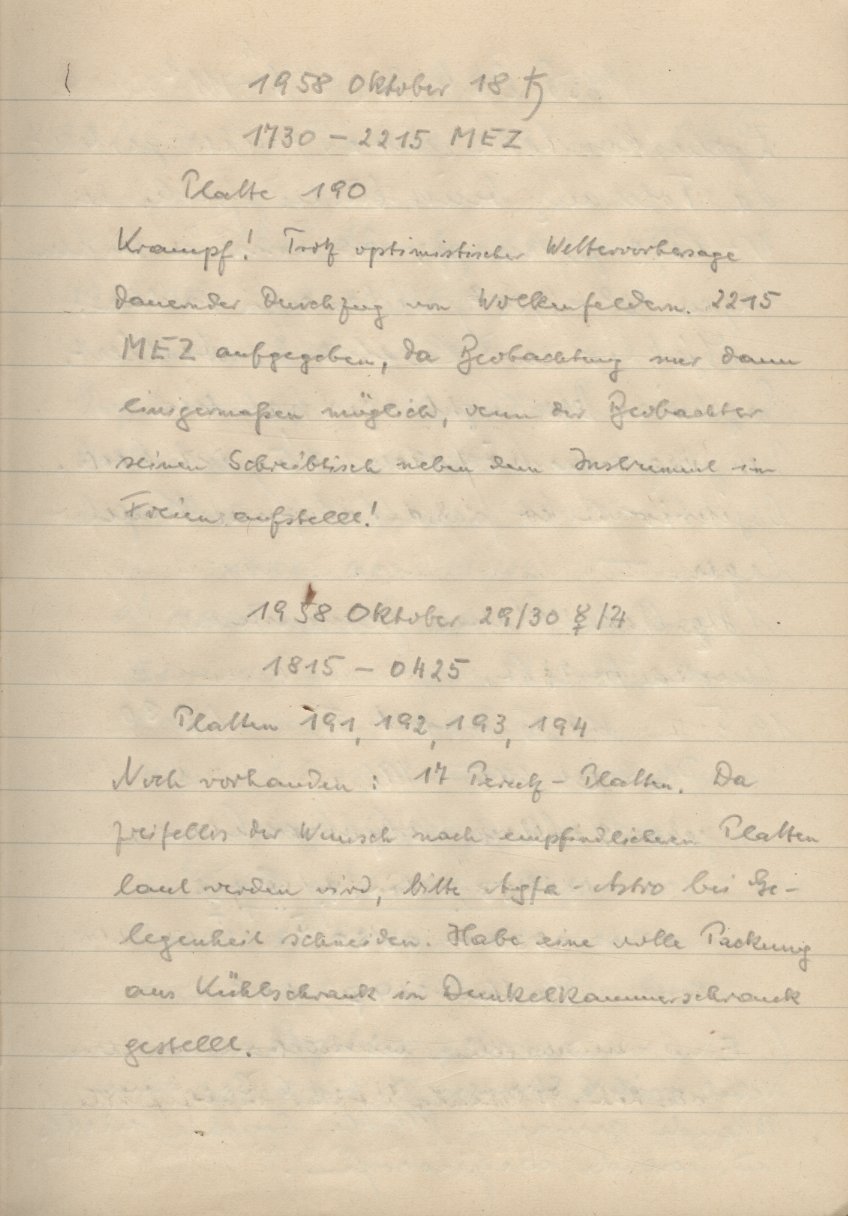 1958 Oktober 18 ♄
1730 – 2215 MEZ
Platte 190
Krampf! Trotz optimistischer Wettervorhersage
dauernder Durchzug von Wolkenfeldern. 2215
MEZ aufgegeben, da Beobachtung nur dann
einigermaßen möglich, wenn der Beobachter
seinen Schreibtisch neben dem Instrument im
Freien aufstellt!
1958 Oktober 29/30 ☿/♃
1815 – 0425
Platten 191, 192, 193, 194
Noch vorhanden: 17 Perutz-Platten. Da
zweifellos der Wunsch nach empfindlicheren Platten
laut werden wird, bitte Agfa-Astro bei Ge-
legenheit schneiden. Habe eine volle Packung
aus Kühlschrank in Dunkelkammerschrank
gestellt.